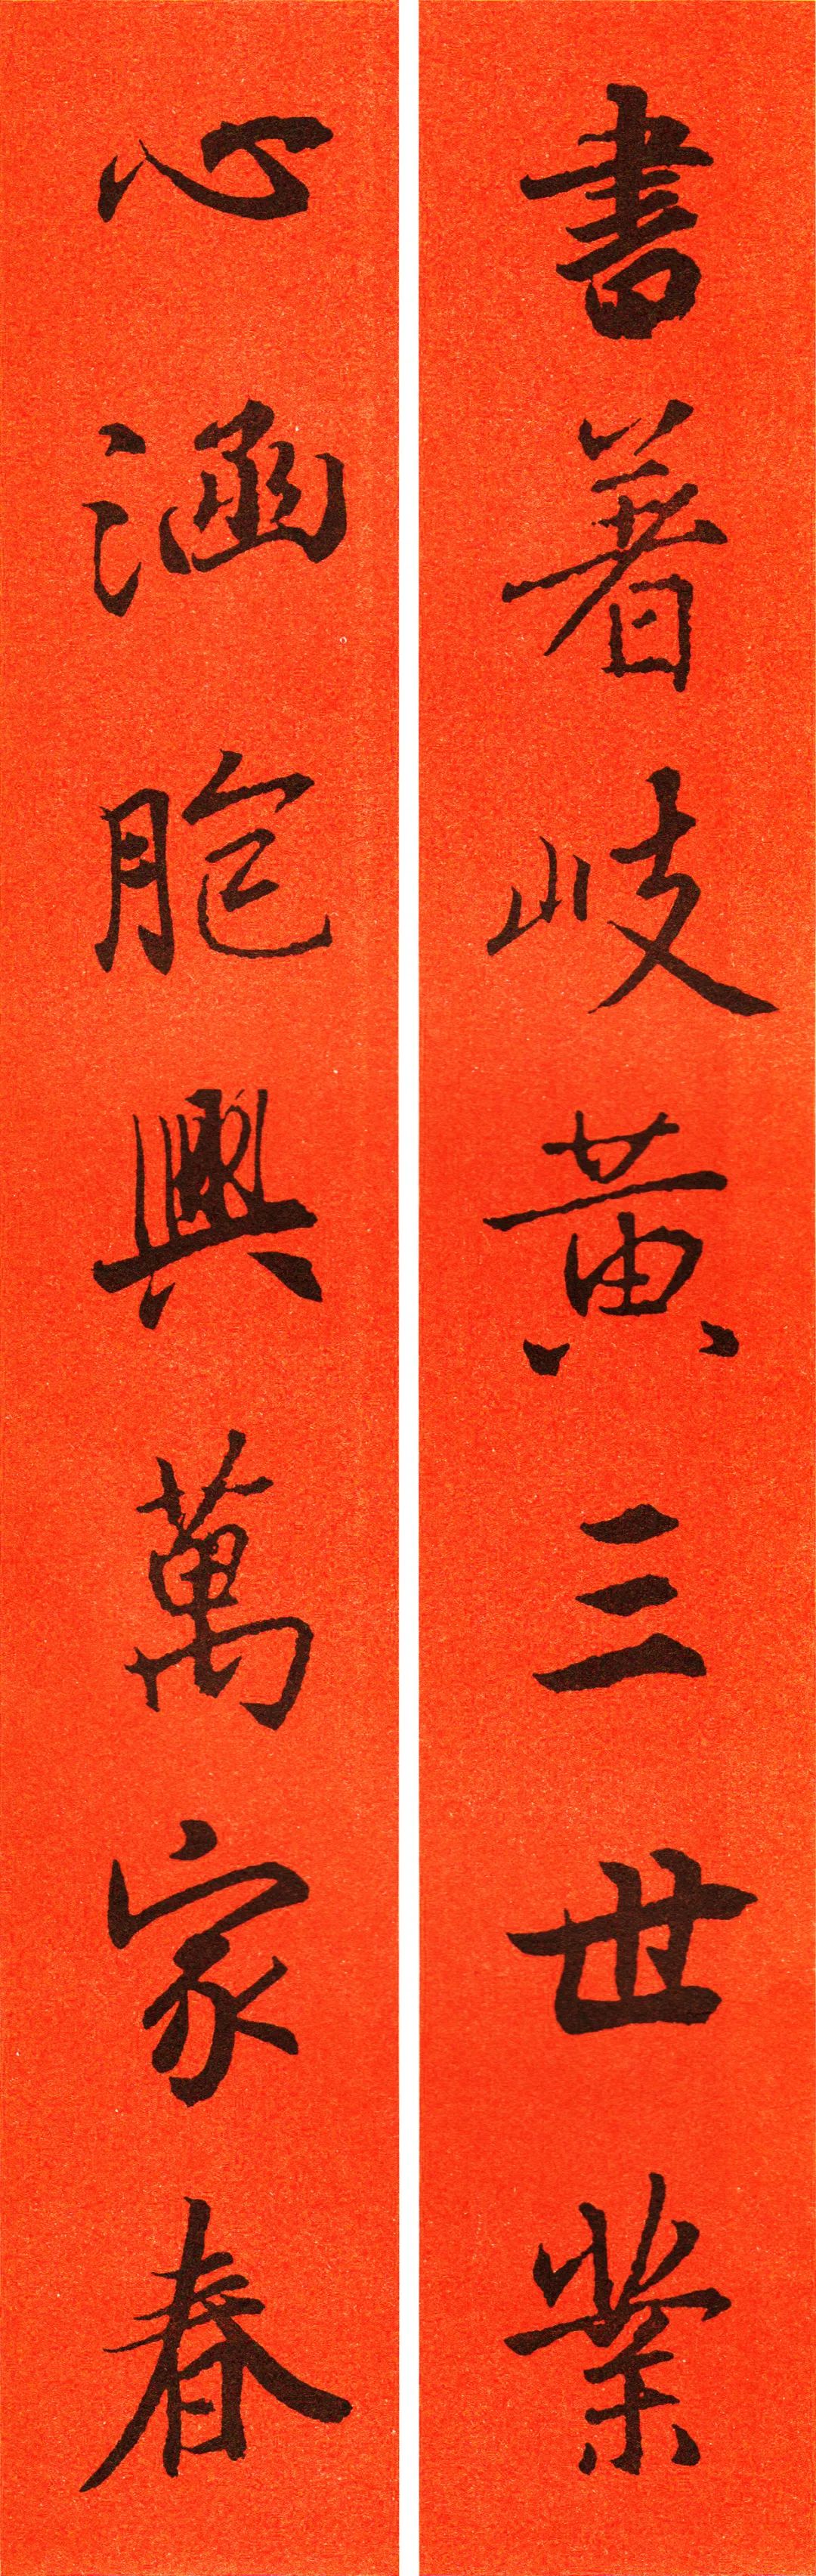 書著岐黃三世業
心涵胞與萬家春